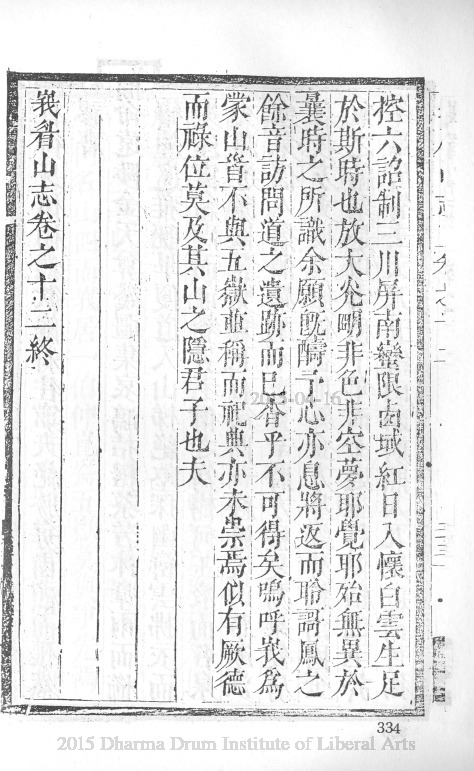 控六詔制三川屏南蠻限西域紅日入懷白雲生足
於斯時也放大光明非色非空夢耶覺耶殆無異於
曩時之所識余願既酧予心亦息將返而聆謌鳳之
餘音訪問道之遺跡而已杳乎不可得矣嗚呼峩為
蒙山昔不與五嶽並稱而祀典亦未崇焉似有厥德
而祿位莫及其山之隱君子也夫
峩眉山志卷之十二終
334
2015 Dharma Drum Institute of Liberal Arts